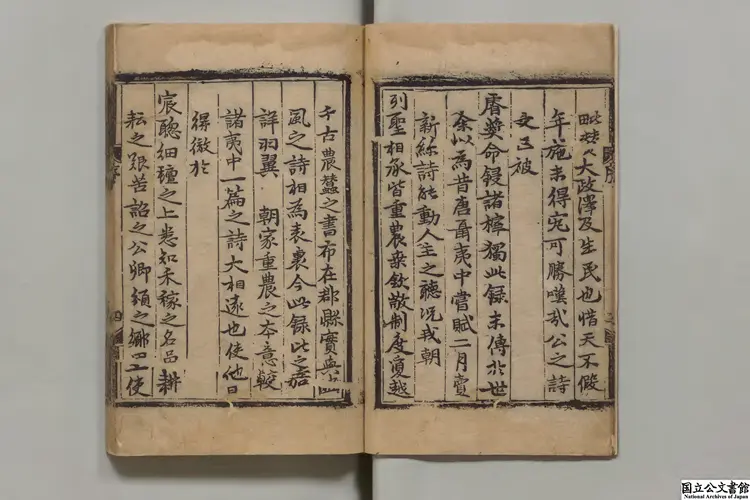 毗其大政澤及生民也惜天不假
年施未得究可勝嘆哉公之詩
文已被
睿奬命録諸梓獨此録未傳於世
余以為昔唐聶夷中嘗賦二月賣
新絲詩能動人主之聽况我朝
列聖相承皆重農桑欽散制度夐越
千古農蠶之書布在郡縣實與豳
風之詩相為表裏今此録比之齊
詳羽翼 朝家重農之本意較
諸夷中一篇之詩大相遠也使他日
得徹於
宸聰細氊之上悉知禾稼之名品耕
耘之艱苦詔之公卿頒之郷曲使
序
四
国立公文書館
National Archives of Japan